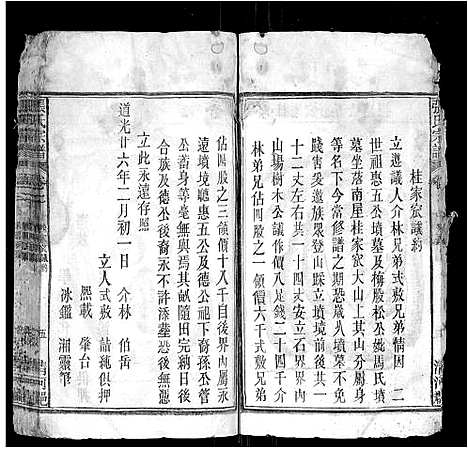 桂家宸議約
立遵議人介林兄弟式敷兄弟情因二
世祖惠五公墳墓及梅股松公妣馬氏墳
墓坐落南星桂家宸大山上其山分屬身
等名下今當修譜之期恐歲久墳墓不免
踐害爰邀族眾登山踩立墳境前後共一
十二丈左右共一十四丈安立石界界内
山塲樹木公議作價八足錢二十四千介
林弟兄佔四股之一領價六千式敷兄弟
佔四股之三領價十八千自後界内屬永
遠墳境聽惠五公及德公祖下裔孫公管
公蓄身等毫無與焉其畝隨田完納日後
合族及德公後裔永不許添塟恐後無憑
立此永遠存照
道光廿六年二月初一日 介林 伯岳
立人式敷 詰純俱押
熙載 肇台
冰鑑 湘霞筆
張氏宗譜
五
清河郡